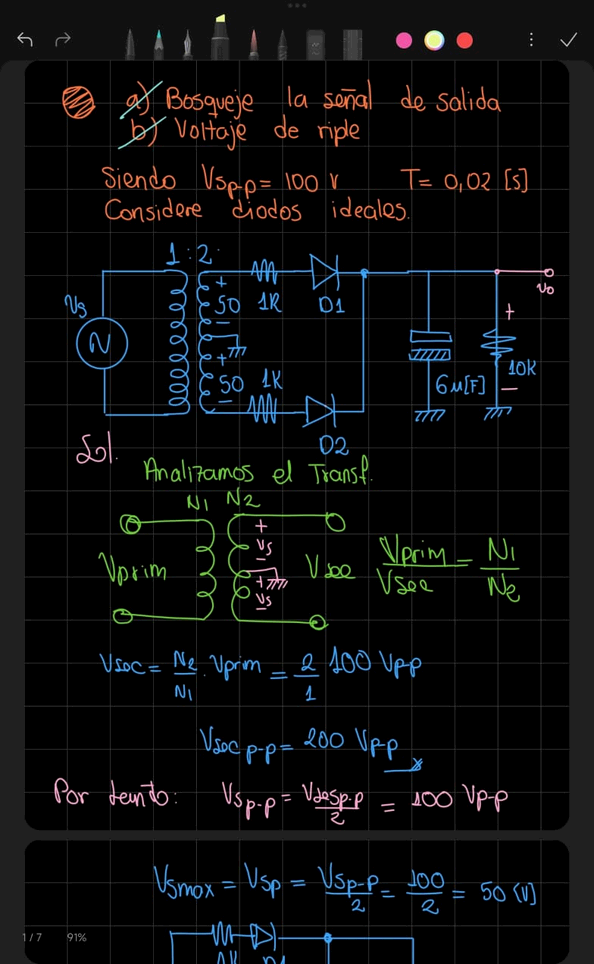 a) Bosqueje la señal de salida
b) Voltaje de riple
Siendo Vsp-p = 100 v T= 0,02 [s]
Considere diodos ideales.
1 : 2
Vs
N
+
50 1K
D1
−
+
50 1K
−
D2
6μ[F]
vo
+
10K
−
Sol.
Analizamos el Transf.
N1 N2
Vprim
+
Vs
−
+
Vs
−
Vsec
Vprim/Vsec = N1/N2
Vsec = N2/N1 . Vprim = 2/1 100 Vp-p
Vsec p-p = 200 Vp-p
Por tanto: Vsp-p = Vsecp-p/2 = 100 Vp-p
Vsmax = Vsp = Vsp-p/2 = 100/2 = 50 [V]
1 / 7 91%